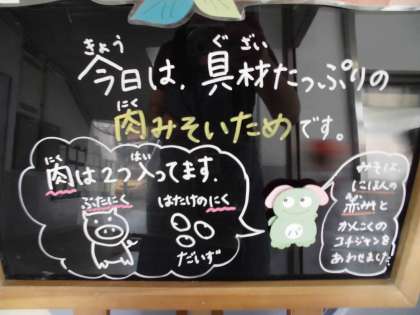 きょう ぐざい
今日は、具材たっぷりの
にく
肉みそいためです。
にく はい
肉は2つ入ってます.
ぶたにく はたけのにく
だいず
みそは、
にほんの
赤みそと
かんこくの
コチジャンを
あわせました